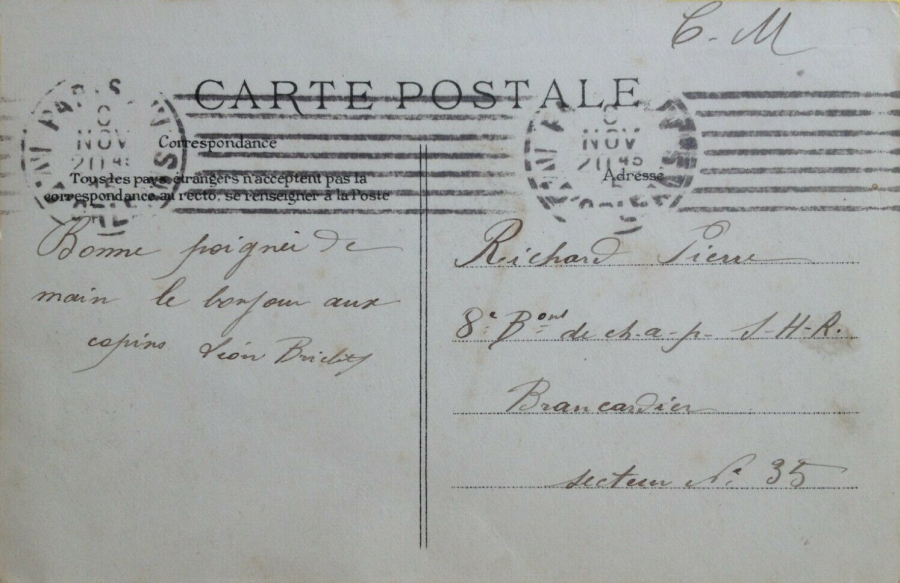 C. M
CARTE POSTALE
PARIS
NOV
20 45
NOV
20 45
Correspondance
Tous les pays étrangers n'acceptent pas la
correspondance au recto, se renseigner à la Poste
Adresse
Bonne poignée de
main le bonjour aux
copins Léon
Richard Pierre
8e Bon de ch-a-p- S-H-R.
Brancardier
secteur No 35